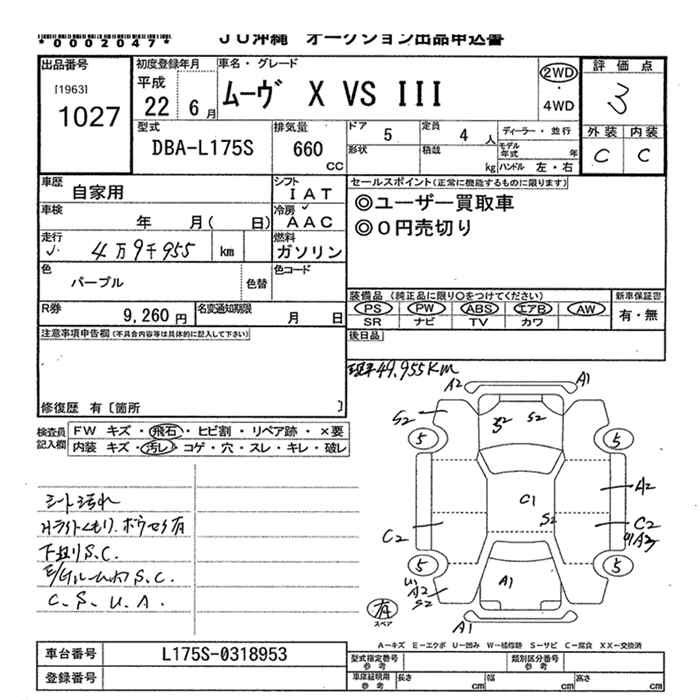 JU沖縄 オークション出品申込書
*0002047*
出品番号
[1963]
1027
初度登録年月
平成
22 6月
車名・グレード
ムーヴ X VS III
2WD
4WD
評価点
3
外装 内装
C C
型式
DBA-L175S
排気量
660
CC
ドア
5
定員
4 人
形状
積載
kg
ディーラー・並行
モデル年式 年
ハンドル 左・右
車歴
自家用
シフト
IAT
車検
年 月( 日)
冷房
AAC
走行
4万9千955 km
燃料
ガソリン
色
パープル
色替
色コード
R券
9,260円
名変通知期限
月 日
セールスポイント(正常に機能するものに限ります)
◎ユーザー買取車
◎0円売切り
装備品 (純正品に限り○をつけてください)
PS PW ABS エアB AW
SR ナビ TV カワ
新車保証書
有・無
後日品
注意事項申告欄(不具合内容等は具体的に記入して下さい)
修復歴 有〔箇所 〕
検査員記入欄
FW キズ・飛石・ヒビ割・リペア跡・×要
内装 キズ・汚レ・コゲ・穴・スレ・キレ・破レ
49,955KM
シート汚れ
下廻りS.C.
C.S.U.A.
A2 A1
S2
S2 S2
5 5
C1
S2
A2
C2
C2
5 5
A2
S2
A1
A1
有
スペア
A-キズ E-エクボ U-凹み W-補修跡 S-サビ C-腐食 XX-交換済
車台番号
L175S-0318953
登録番号
型式指定番号
参考
類別区分番号
参考
車庫証明用
参考
長さ cm
幅 cm
高さ cm